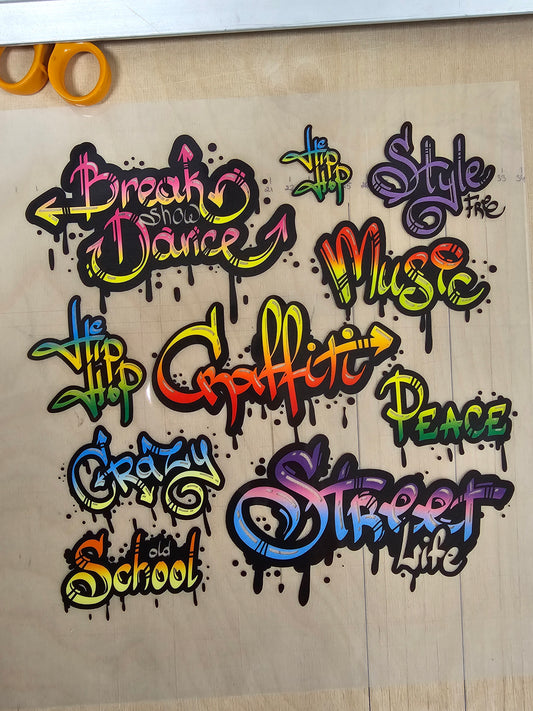 Break
Show
Dance
Hip
Hop
Style
Free
Music
Hip
Hop
Graffiti
Peace
Crazy
Street
Life
old
School